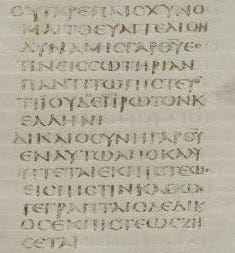 ΟΥΓΑΡΕΠΑΙϹΧΥΝΟ
ΜΑΙΤΟΕΥΑΓΓΕΛΙΟΝ
ΔΥΝΑΜΙϹΓΑΡΘΥΕϹ
ΤΙΝΕΙϹϹΩΤΗΡΙΑΝ
ΠΑΝΤΙΤΩΠΙϹΤΕΥΟ
ΠΡΩΤΟΝΚ
ΕΛΛΗΝΙ
ΔΙΚΑΙΟϹΥΝΗΓΑΡΘΥ
ΕΝΑΥΤΩΑΠΟΚΑΛΥ
ΠΤΕΤΑΙΕΚΠΙϹΤΕΩϹ
ΕΙϹΠΙϹΤΙΝΚΑΘΩϹ
ΓΕΓΡΑΠΤΑΙΟΔΕΔΙΚ
ΟϹΕΚΠΙϹΤΕΩϹΖΗ
ϹΕΤΑΙ